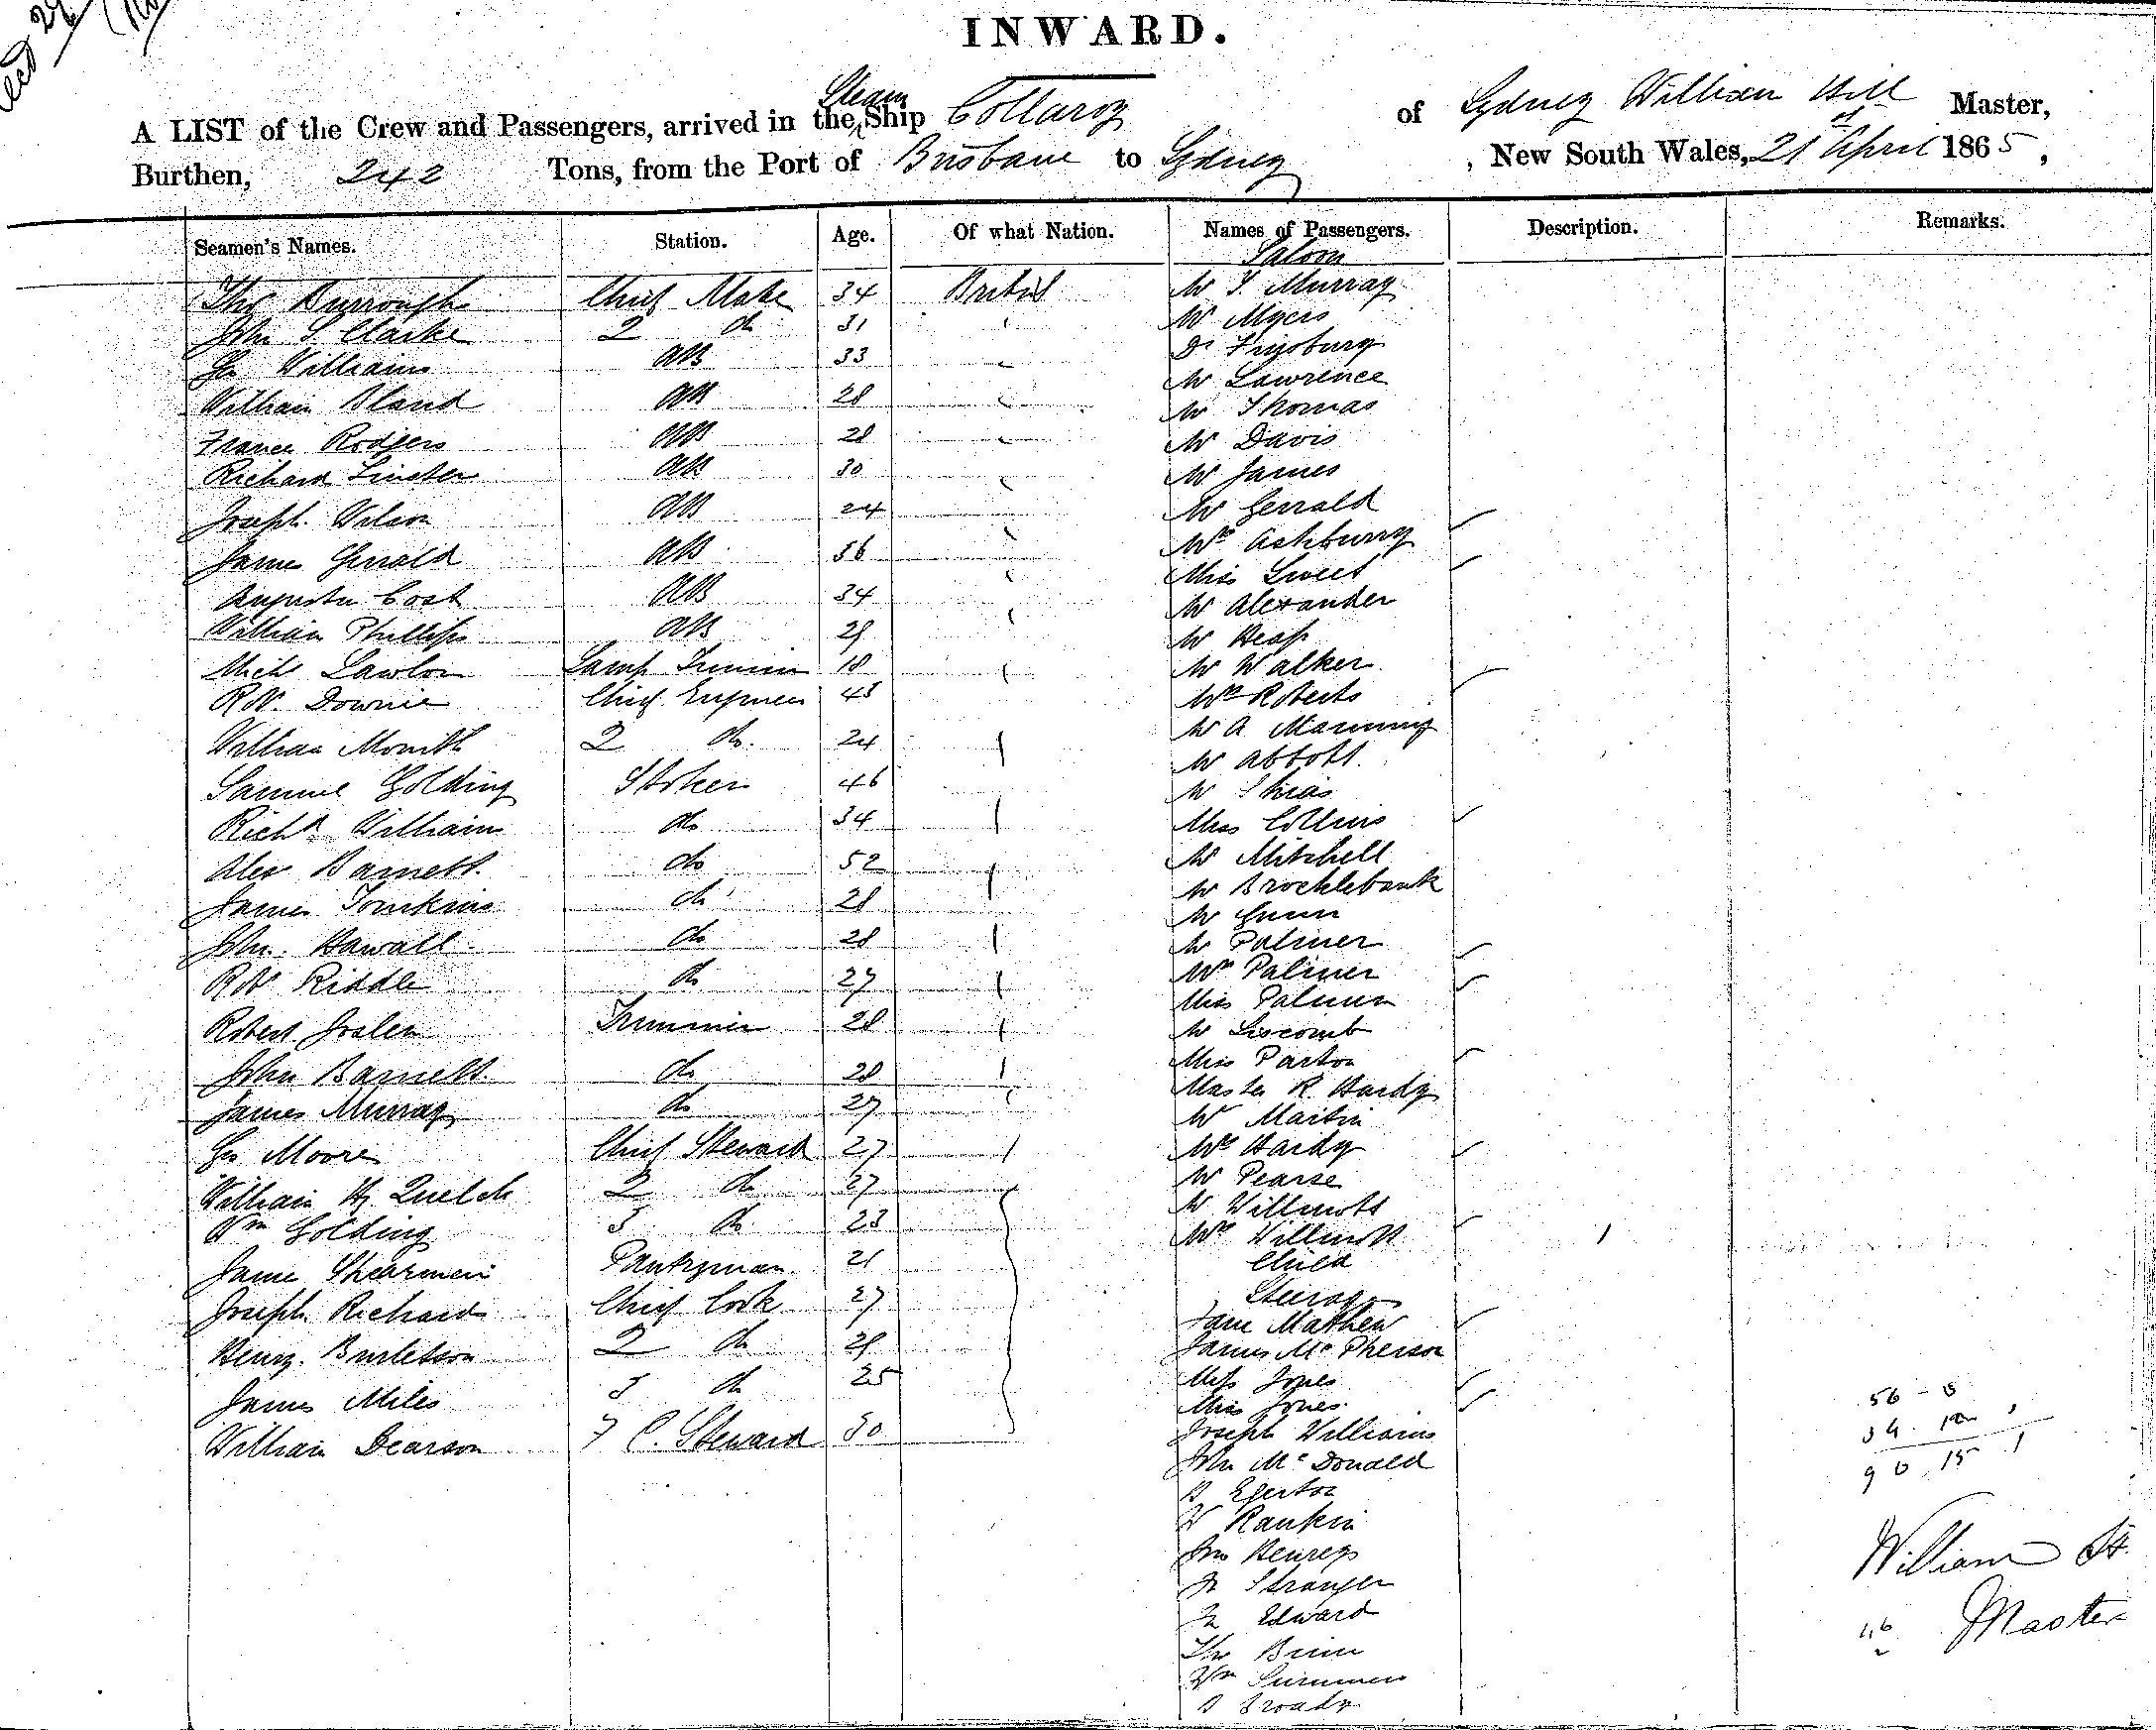 INWARD.
A LIST of the Crew and Passengers, arrived in the Steam Ship Collaroy of Sydney William Hill Master,
Burthen, 242 Tons, from the Port of Brisbane to Sydney, New South Wales, 21st April 1865,
Seamen's Names. Station. Age. Of what Nation. Names of Passengers. Description. Remarks.
Saloon
Thos Burrough Chief Mate 34 British Mr J. Murray
John S Clarke 2 do 31 Mr Myers
Geo Williams AB 33 Dr
William Bland AB 28 Mr Lawrence
Mr Thomas
Rodgers AB 28 Mr Davis
Richard AB 30 Mr James
Joseph Wilson AB 24 Mr Gerrald
James Gerrald AB 36 Mrs Ashburry
Miss Sweet
Augustu Cost AB 34 Mr Alexander
William Phillips AB 29 Mr Heap
Michl Lawlor Lamp Trimmer 18 Mr Walker
Robt Downie Chief Engineer 43 Mrs Roberts
Mr A. Manning
William 2 do. 24 Mr Abbott.
Samuel Golding Stoker 46 Mr
Richd Williams do 34 Miss Collins
Alex Barnett. do 52 Mr Mitchell
Mr Brocklebank
James Tomkins do 28 Mr Gunn
John. do 28 Mr Palmer
Robt Riddle do 27 Mrs Palmer
Miss Palmer
Robert Trimmer 28 Mr Liscomb
Miss Parton
John Barnett. do 28 Master R. Hardy
James Murray do 27 Mr Martin
Geo Moore Chief Steward 27 Mrs Hardy
Mr Pearse
William Hy Quelch 2 do 27 Mr Willmott
Wm Golding 3 do 23 Mrs Willmott
Child
James Shearmen Pantryman 21
Steerage
Joseph Richards Chief Cook 27 Jane Mathew
Henry. Burletson 2 do 29 James McPherson
Miss Jones
James Miles 3 do 25 Miss Jones.
William Dearson F C. Steward 50 Joseph Williams
John McDonald
Egerton
W Rankin
Jno
Jn Stranger
Edward
Thos
Wm Summers
Broady
56
34
90 15 1
William H.
Master